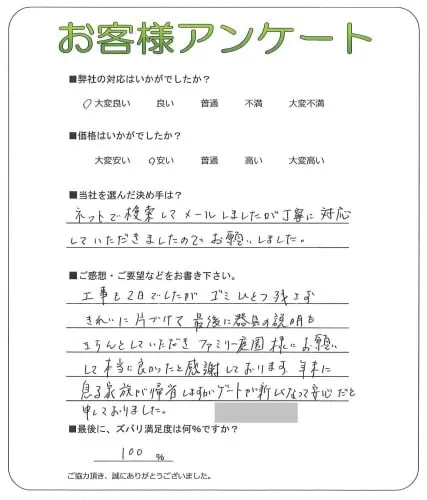 お客様アンケート
■弊社の対応はいかがでしたか？
○大変良い 良い 普通 不満 大変不満
■価格はいかがでしたか？
大変安い ○安い 普通 高い 大変高い
■当社を選んだ決め手は？
ネットで検索してメールしましたが丁寧に対応
していただきましたのでお願いしました。
■ご感想・ご要望などをお書き下さい。
工事も2日でしたが ゴミひとつ残さず
きれいに片づけて 最後に器具の説明も
きちんとしていただき ファミリー庭園様にお願い
して本当に良かったと感謝しております 年末に
息子家族が帰省しますがゲートが新しくなって安心だと
申しておりました。
■最後に、ズバリ満足度は何％ですか？
100 %
ご協力頂き、誠にありがとうございました。